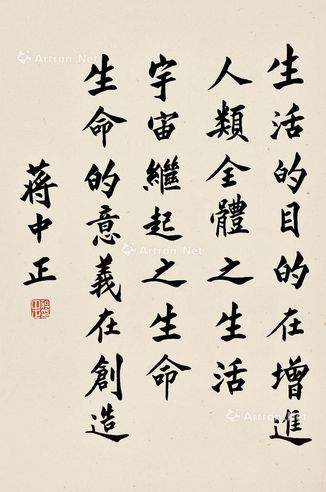 生活的目的在增進
人類全體之生活
生命的意義在創造
宇宙繼起之生命
蔣中正
Artron.Net
Artron.Net
Artron.Net
Artron.Net